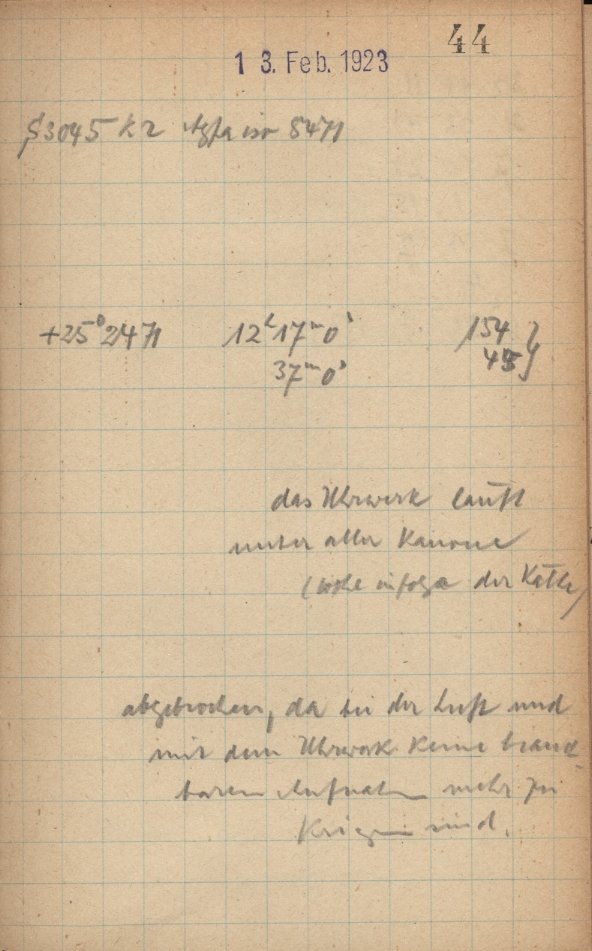 44
13. Feb. 1923
S3045 K2 Agfa iso 8471
+25° 2471 12h17m0s 154 }
37m0s 45 }
das Uhrwerk läuft
unter aller Kanone
(wohl infolge der Kälte)
abgebrochen, da bei der Luft und
mit dem Uhrwerk keine brauch-
baren Aufnahmen mehr zu
kriegen sind.